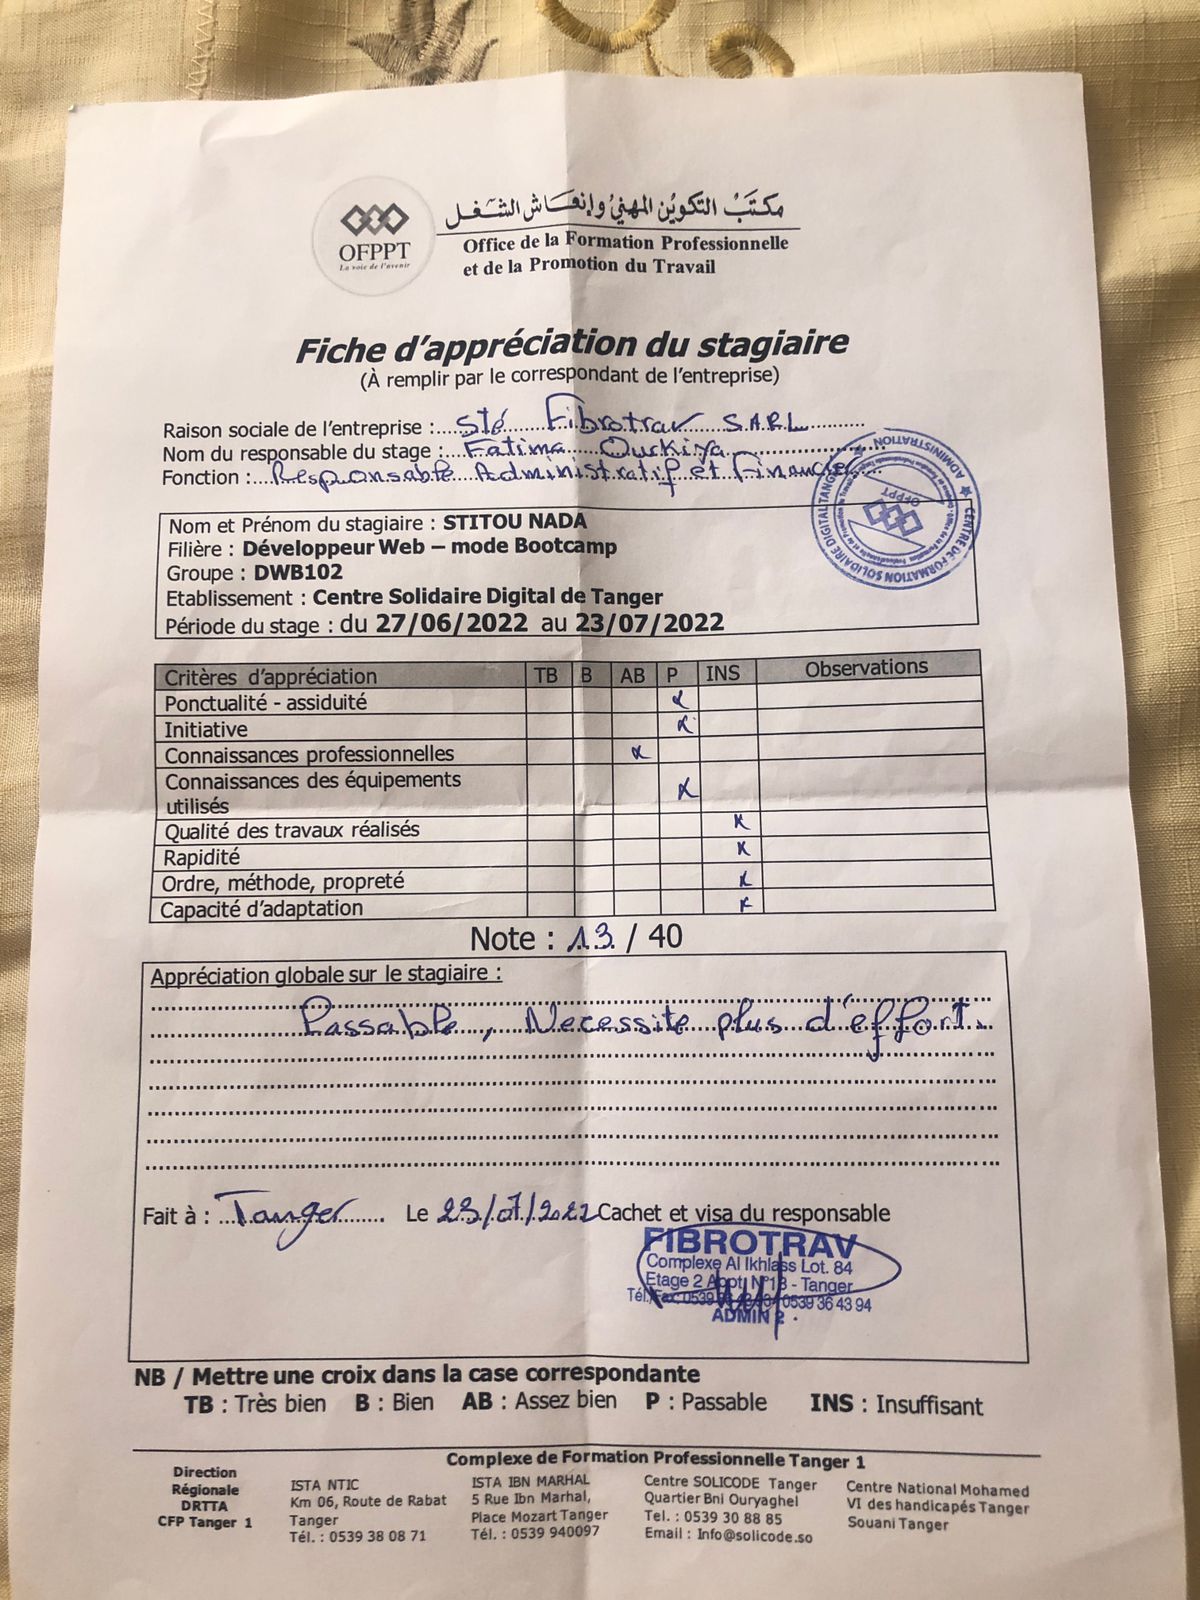 OFPPT
La voie de l'avenir
مكتب التكوين المهني وإنعاش الشغل
Office de la Formation Professionnelle
et de la Promotion du Travail
Fiche d'appréciation du stagiaire
(À remplir par le correspondant de l'entreprise)
Raison sociale de l'entreprise : Sté Fibrotrav S.A.R.L
Nom du responsable du stage : Fatima
Fonction : Responsable Administratif et Financier
CENTRE DE FORMATION SOLIDAIRE DIGITAL TANGER
ADMINISTRATION
OFPPT
Nom et Prénom du stagiaire : STITOU NADA
Filière : Développeur Web – mode Bootcamp
Groupe : DWB102
Etablissement : Centre Solidaire Digital de Tanger
Période du stage : du 27/06/2022 au 23/07/2022
Critères d'appréciation TB B AB P INS Observations
Ponctualité - assiduité x
Initiative x
Connaissances professionnelles x
Connaissances des équipements
utilisés x
Qualité des travaux réalisés x
Rapidité x
Ordre, méthode, propreté x
Capacité d'adaptation x
Note : 13 / 40
Appréciation globale sur le stagiaire :
Passable, Necessite plus d'effort.
Fait à : Tanger Le 23/07/2022 Cachet et visa du responsable
FIBROTRAV
Complexe Al Ikhlass Lot. 84
Etage 2 Appt. N°13 - Tanger
Tél./Fax: 0539 0539 36 43 94
ADMIN 2
NB / Mettre une croix dans la case correspondante
TB : Très bien B : Bien AB : Assez bien P : Passable INS : Insuffisant
Complexe de Formation Professionnelle Tanger 1
Direction
Régionale
DRTTA
CFP Tanger 1
ISTA NTIC
Km 06, Route de Rabat
Tanger
Tél. : 0539 38 08 71
ISTA IBN MARHAL
5 Rue Ibn Marhal,
Place Mozart Tanger
Tél. : 0539 940097
Centre SOLICODE Tanger
Quartier Bni Ouryaghel
Tel. : 0539 30 88 85
Email : Info@solicode.so
Centre National Mohamed
VI des handicapés Tanger
Souani Tanger